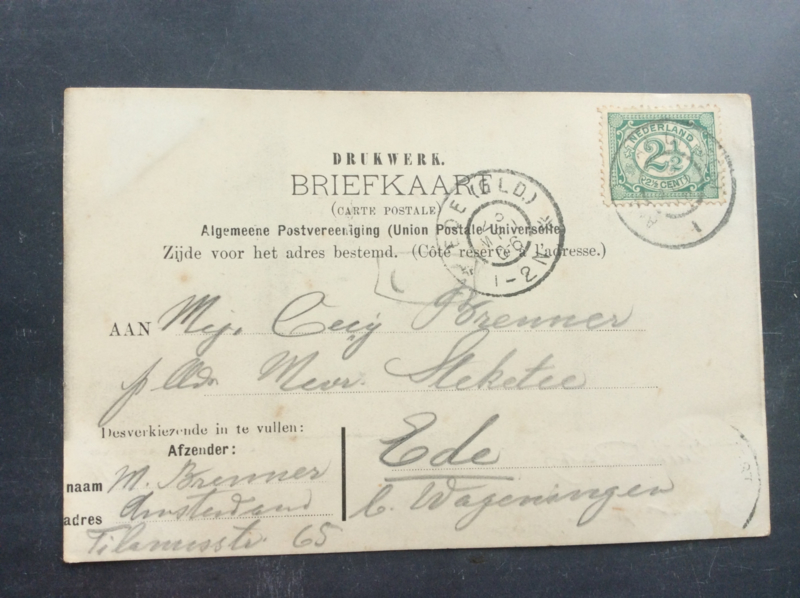 NEDERLAND
2½
(2½ CENT)
DRUKWERK.
BRIEFKAART
(CARTE POSTALE)
EDE (GLD.)
1-2N
Algemeene Postvereeniging (Union Postale Universelle)
Zijde voor het adres bestemd. (Côté réservé à l'adresse.)
AAN Mej. Cecij Brenner
p/ Adr. Mevr. Steketee
Ede
b. Wageningen
Desverkiezende in te vullen:
Afzender:
naam M. Brenner
adres Amsterdam
65